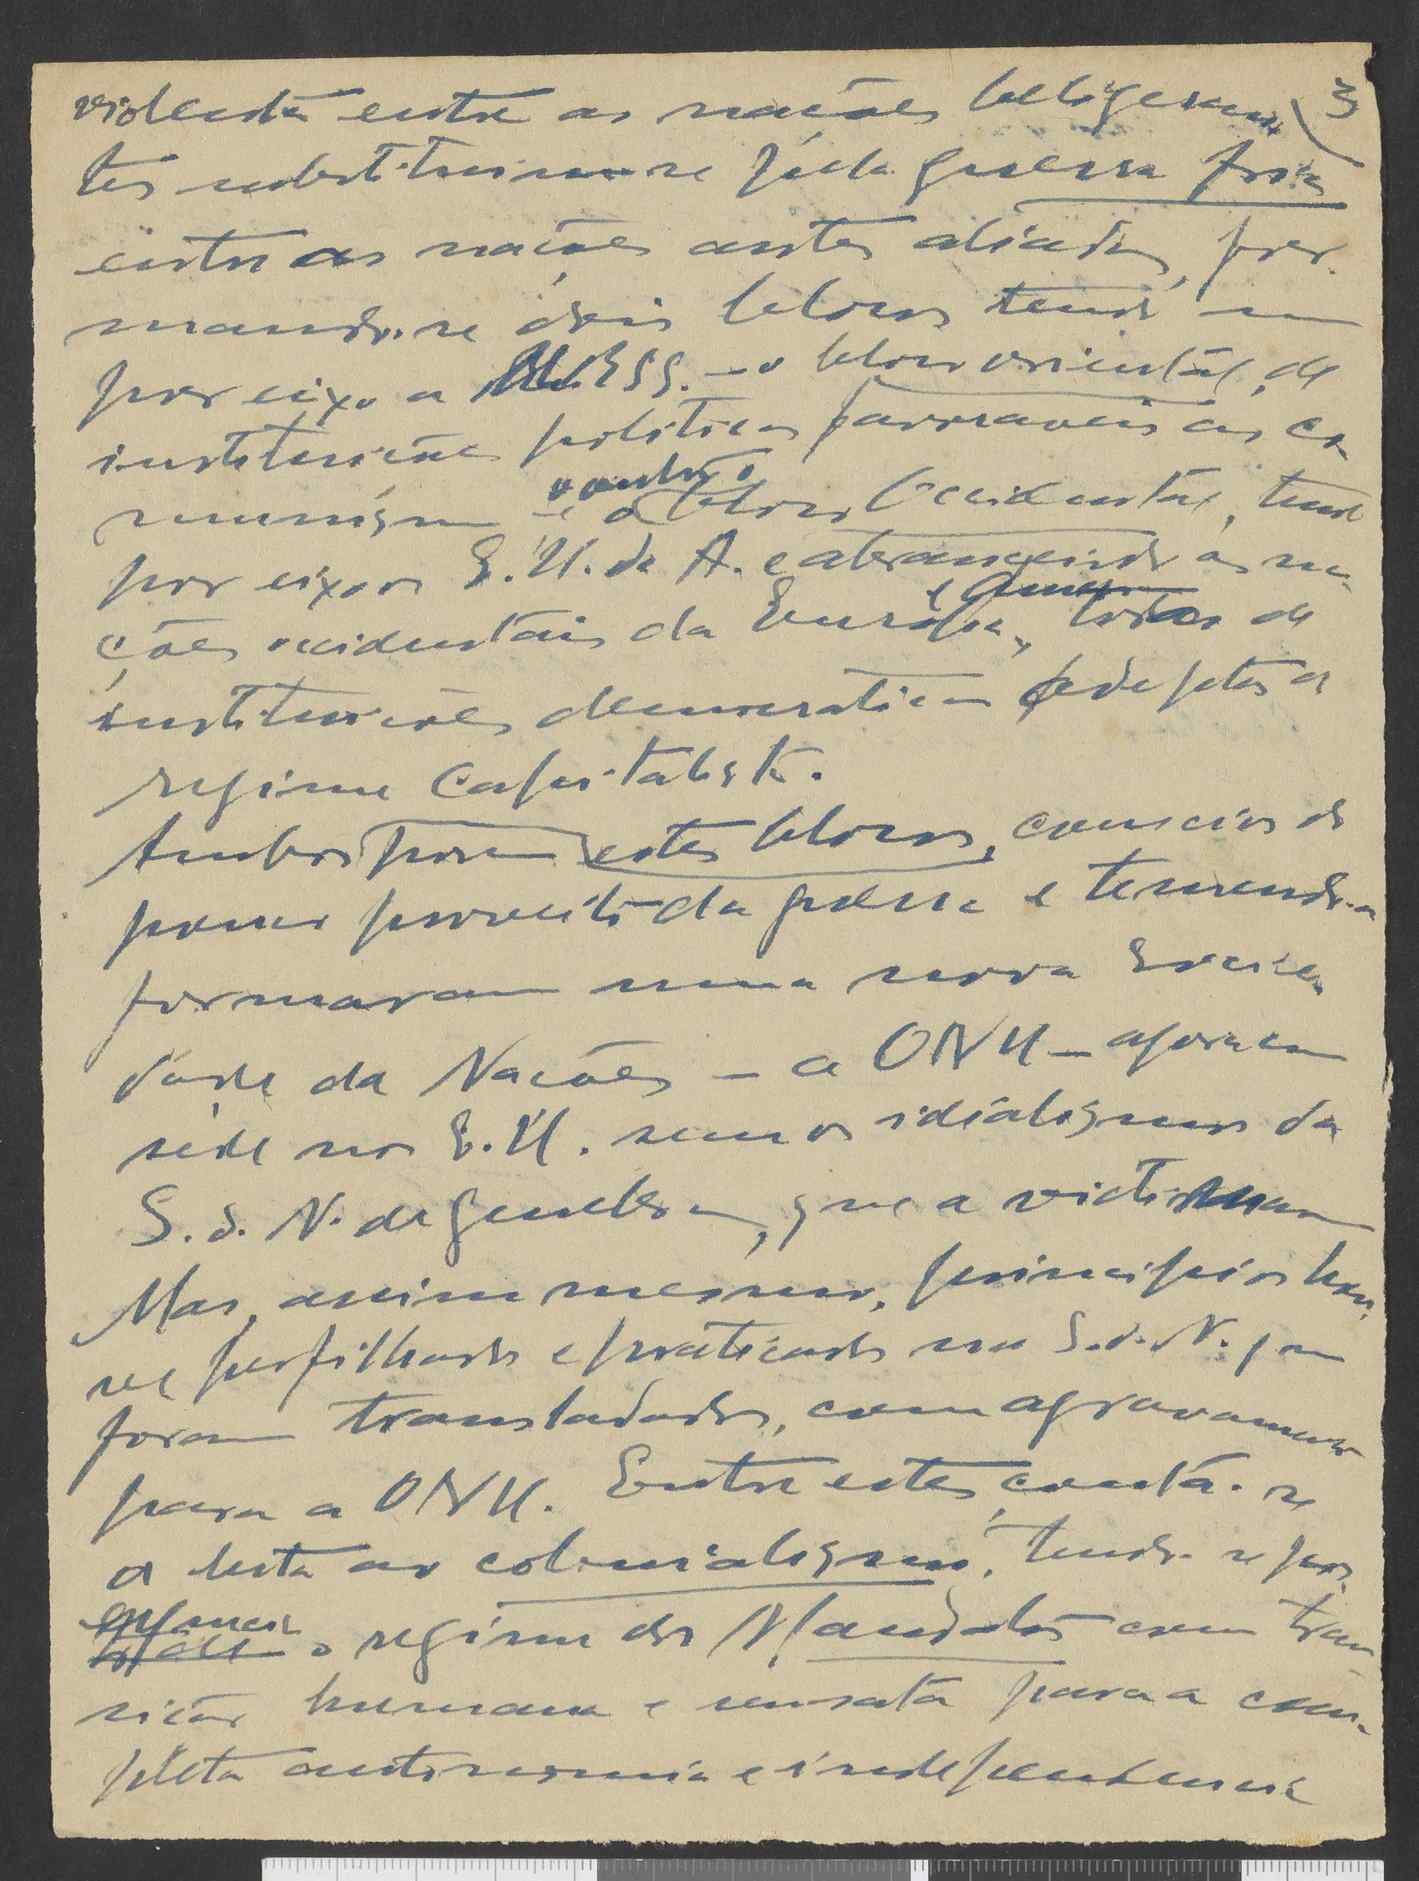 3
violenta entre as nações beligeran
tes substituiu-se pela guerra fria
entre as nações antes aliadas, for-
mando-se dois blocos tendo um
por eixo a U.R.S.S. — o bloco oriental, de
instituições politicas favoraveis ao co-
munismo e o outro o bloco Occidental, tendo
por eixo os E.U. da A. e abrangendo as na-
ções occidentais da Europa, e America todas de
instituições democraticas adeptas do
regime Capitalista.
Ambos porem estes blocos, conscios do
pouco proveito da guerra e temendo-a
formaram uma nova Socie-
dade da Nações — a ONU — agora com
séde nos E.U. sem os idealismos da
S.d.N. de Genebra, que a victimaram
Mas, assim mesmo, principios hou-
ve perfilhados e praticados na S.d.N. que
foram transladados, com agravamento
para a ONU. Entre estes, conta-se
a luta ao colonialismo, tendo-se por
o regimen dos Mandatos com tran
sição humana e sensata para a com-
pleta autonomia e independencia